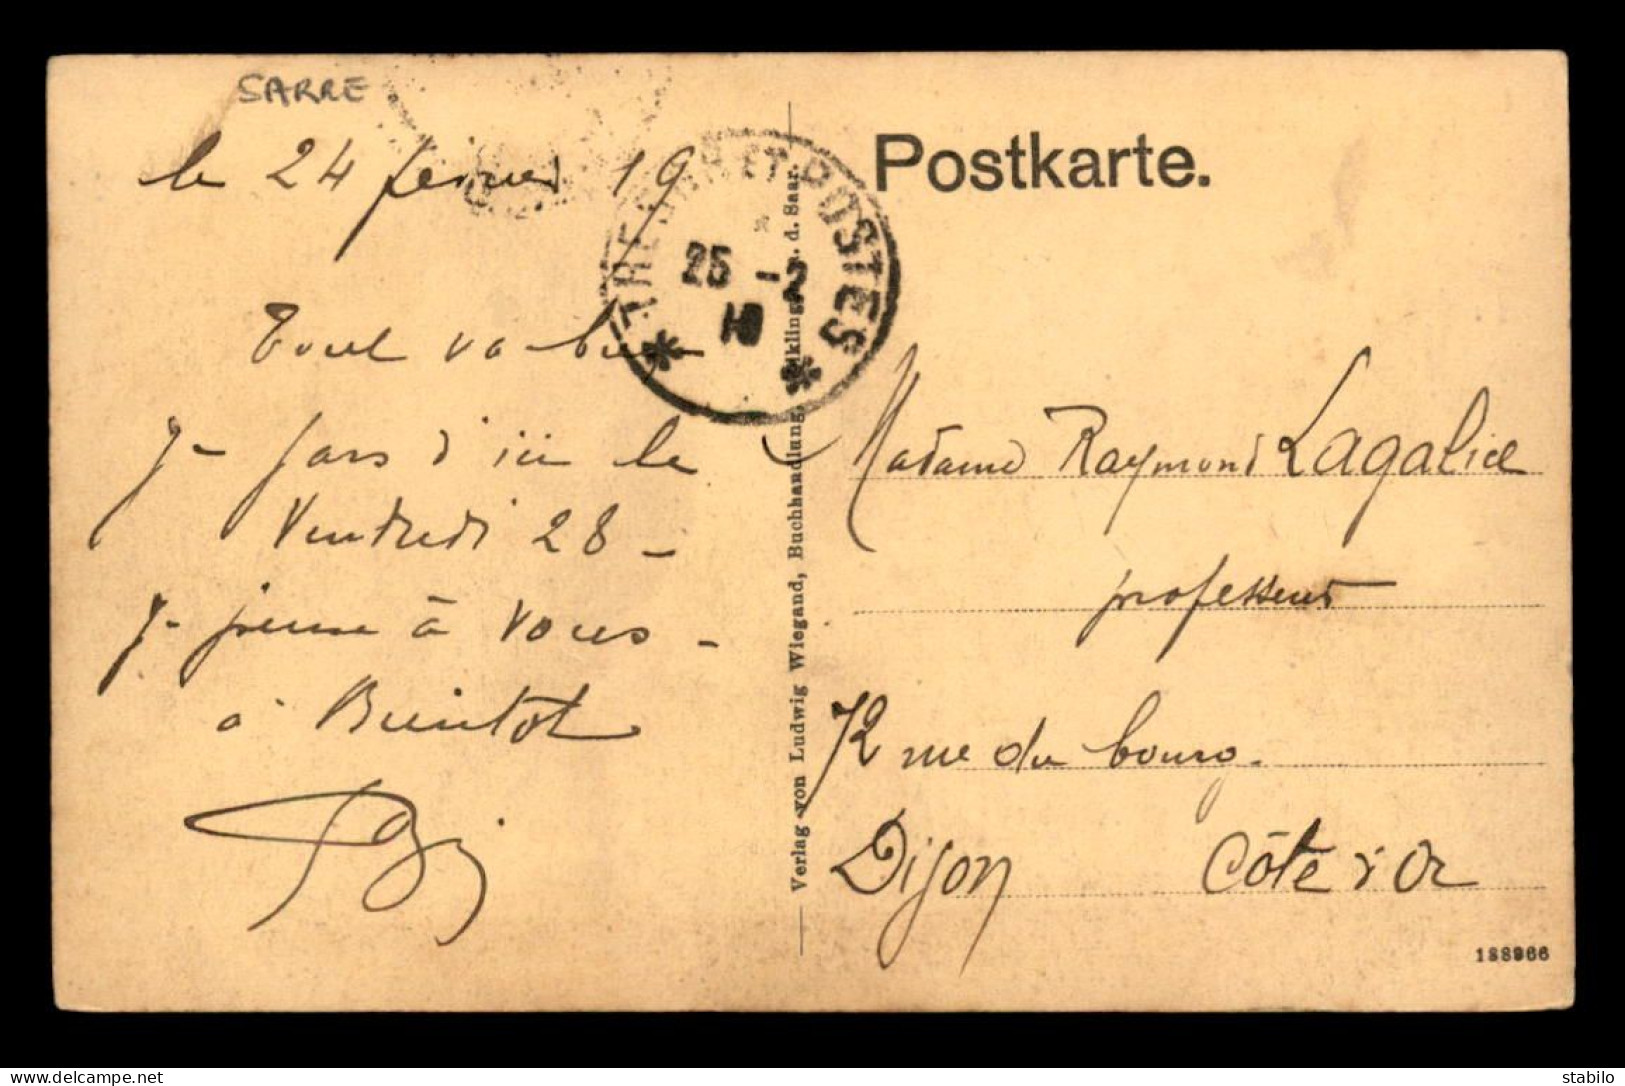 SARRE
le 24 février 19
Tout va bien
Je pars d'ici le
Vendredi 28 -
Je pense à vous -
à Bientôt
TRESOR ET POSTES
25 - 2
19
Verlag von Ludwig Wiegand, Buchhandlung, a. d. Saar.
Postkarte.
Madame Raymond Lagalice
professeur
72 rue du bourg.
Dijon Côte d'Or
188966
www.delcampe.net
stabilo